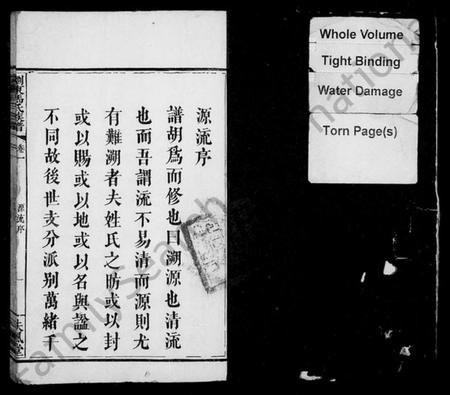 源流序
譜胡爲而修也曰溯源也清流
也而吾謂流不易清而源則尤
有難溯者夫姓氏之昉或以封
或以賜或以地或以名與諡之
不同故後世支分派别萬緒千
瀏東馮氏族譜
卷一
源流序
一
Whole Volume
Tight Binding
Water Damage
Torn Page(s)
familysearch
nation